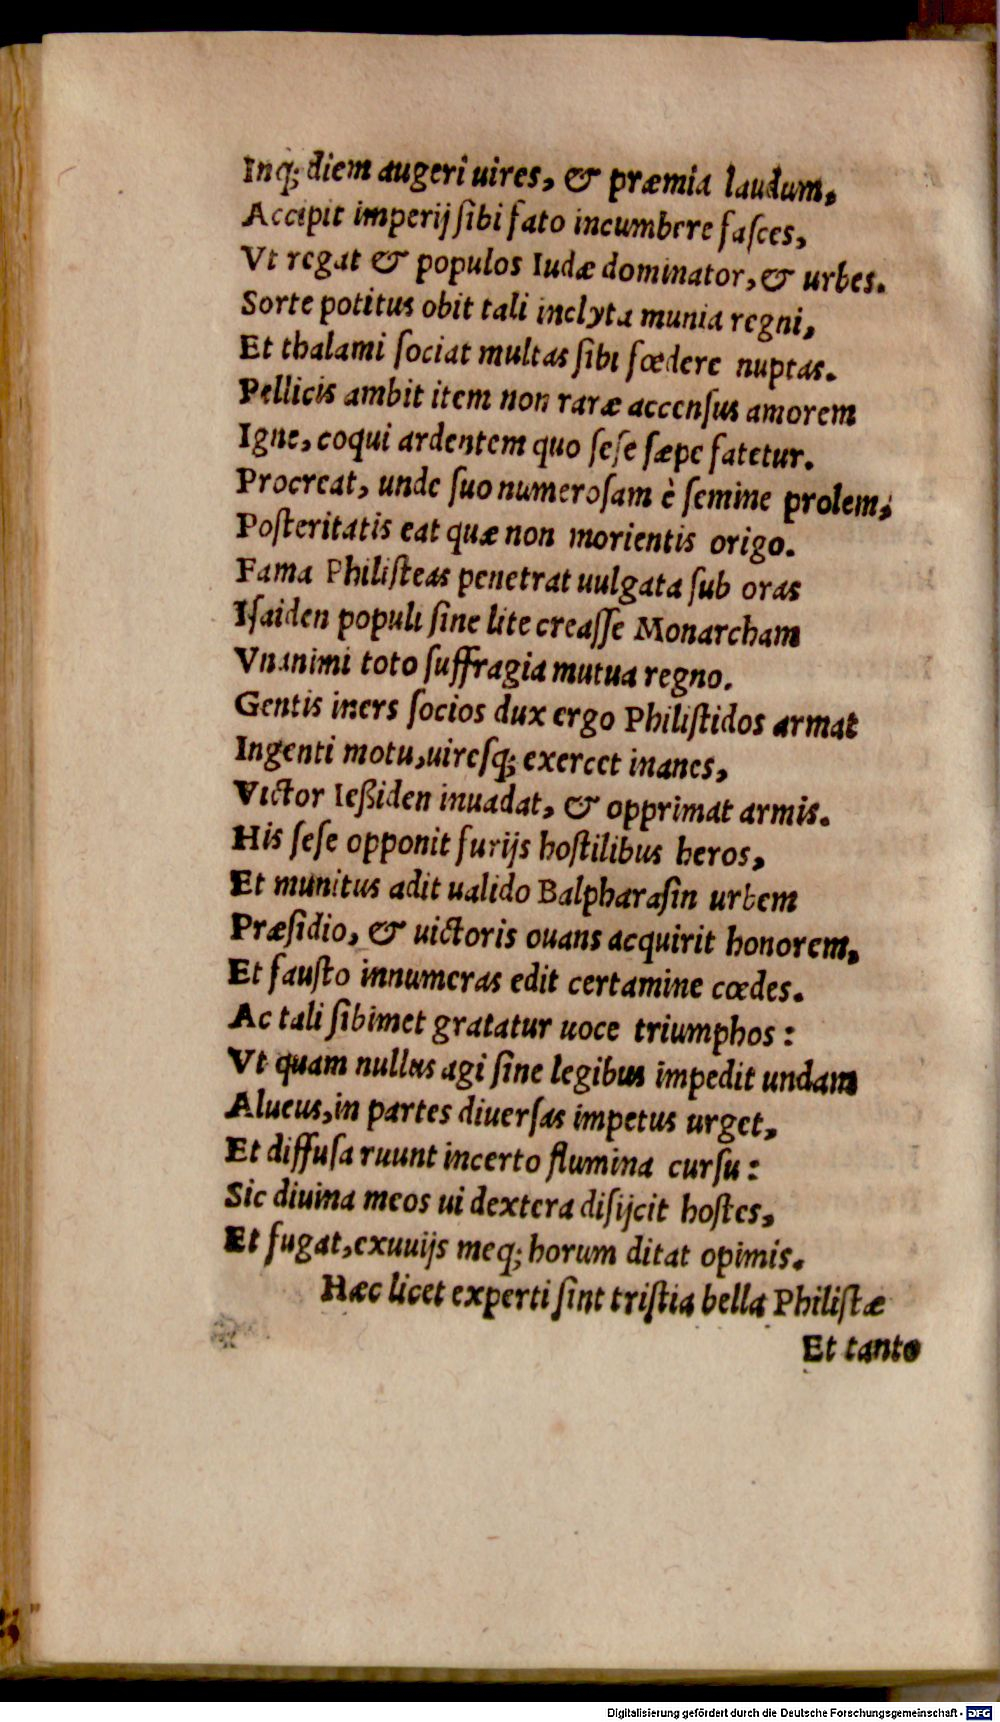 Inq; diem augeri uires, & præmia laudum,
Accipit imperij ſibi fato incumbere faſces,
Vt regat & populos Iudæ dominator, & urbes.
Sorte potitus obit tali inclyta munia regni,
Et thalami ſociat multas ſibi fœdere nuptas.
Pellicis ambit item non raræ accenſus amorem
Igne, coqui ardentem quo ſeſe ſæpe fatetur.
Procreat, unde ſuo numeroſam è ſemine prolem,
Poſteritatis eat quæ non morientis origo.
Fama Philiſteas penetrat uulgata ſub oras
Iſaiden populi ſine lite creaſſe Monarcham
Vnanimi toto ſuffragia mutua regno.
Gentis iners ſocios dux ergo Philiſtidos armat
Ingenti motu, uiresq; exercet inanes,
Victor Ießiden inuadat, & opprimat armis.
His ſeſe opponit furijs hoſtilibus heros,
Et munitus adit ualido Balpharaſin urbem
Præſidio, & uictoris ouans acquirit honorem,
Et fauſto innumeras edit certamine cœdes.
Ac tali ſibimet gratatur uoce triumphos:
Vt quam nullus agi ſine legibus impedit undam
Alueus, in partes diuerſas impetus urget,
Et diffuſa ruunt incerto flumina curſu:
Sic diuina meos ui dextera diſijcit hoſtes,
Et fugat, exuuijs meq; horum ditat opimis.
Hæc licet experti ſint triſtia bella Philiſtæ
Et tanto
Digitalisierung gefördert durch die Deutsche Forschungsgemeinschaft - DFG